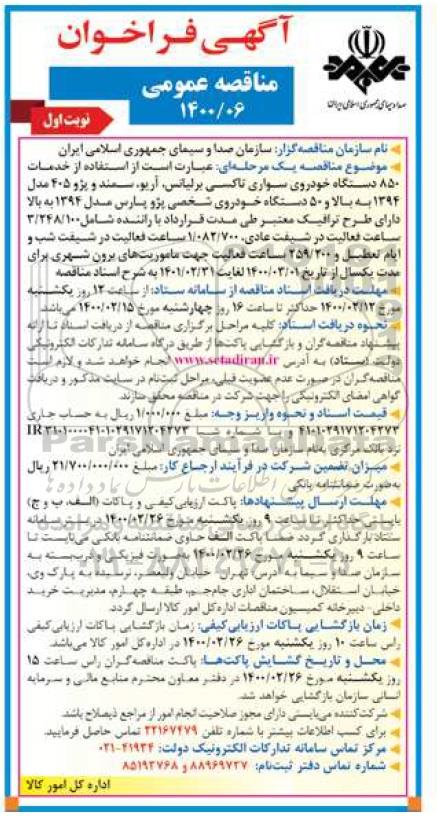 آگهی فراخوان
مناقصه عمومی
۱۴۰۰/۰۶
نوبت اول
صدا و سیمای جمهوری اسلامی ایران
نام سازمان مناقصه‌گزار: سازمان صدا و سیمای جمهوری اسلامی ایران
موضوع مناقصه یک مرحله‌ای: عبارت است از استفاده از خدمات
۸۵۰ دستگاه خودروی سواری تاکسی برلیانس، آریو، سمند و پژو ۴۰۵ مدل
۱۳۹۴ به بالا و ۵۰ دستگاه خودروی شخصی پژو پارس مدل ۱۳۹۴ به بالا
دارای طرح ترافیک معتبر طی مدت قرارداد با راننده شامل ۳/۲۴۸/۱۰۰
ساعت فعالیت در شیفت عادی، ۱/۰۸۲/۷۰۰ ساعت فعالیت در شیفت شب و
ایام تعطیل و ۲۵۹/۲۰۰ ساعت فعالیت جهت ماموریت‌های برون شهری برای
مدت یکسال از تاریخ ۱۴۰۰/۰۳/۰۱ لغایت ۱۴۰۱/۰۲/۳۱ به شرح اسناد مناقصه
مهلت دریافت اسناد مناقصه از سامانه ستاد: از ساعت ۱۲ روز یکشنبه
مورخ ۱۴۰۰/۰۲/۱۲ حداکثر تا ساعت ۱۶ روز چهارشنبه مورخ ۱۴۰۰/۰۲/۱۵ می‌باشد.
نحوه دریافت اسناد: کلیه مراحل برگزاری مناقصه از دریافت اسناد تا ارائه
پیشنهاد مناقصه‌گران و بازگشایی پاکت‌ها از طریق درگاه سامانه تدارکات الکترونیکی
دولت (ستاد) به آدرس www.setadiran.ir انجام خواهد شد و لازم است
مناقصه‌گران در صورت عدم عضویت قبلی، مراحل ثبت‌نام در سایت مذکور و دریافت
گواهی امضای الکترونیکی را جهت شرکت در مناقصه محقق سازند.
قیمت اسناد و نحوه واریز وجه: مبلغ ۱/۰۰۰/۰۰۰ ریال به حساب جاری
۴۱۰۱۰۲۹۱۷۱۲۰۴۲۷۳ با شماره شبا IR۳۱۰۱۰۰۰۰۴۱۰۱۰۲۹۱۷۱۲۰۴۲۷۳
نزد بانک مرکزی به‌نام سازمان صدا و سیمای جمهوری اسلامی ایران
میزان تضمین شرکت در فرآیند ارجاع کار: مبلغ ۲۱/۷۰۰/۰۰۰/۰۰۰ ریال
به‌صورت ضمانتنامه بانکی
مهلت ارسال پیشنهادها: پاکت ارزیابی کیفی و پاکات (الف، ب و ج)
بایستی حداکثر تا ساعت ۹ روز یکشنبه مورخ ۱۴۰۰/۰۲/۲۶ در بستر سامانه
ستاد بارگذاری گردد ضمنا پاکت الف حاوی ضمانتنامه بانکی می‌بایست تا
ساعت ۹ روز یکشنبه مورخ ۱۴۰۰/۰۲/۲۶ به‌صورت فیزیکی و دربسته به
سازمان صدا و سیما به آدرس: تهران، خیابان ولیعصر، نرسیده به پارک وی،
خیابان استقلال، ساختمان اداری جام‌جم، طبقه چهارم، مدیریت خرید
داخلی - دبیرخانه کمیسیون مناقصات اداره کل امور کالا ارسال گردد.
زمان بازگشایی پاکات ارزیابی کیفی: زمان بازگشایی پاکات ارزیابی کیفی
راس ساعت ۱۰ روز یکشنبه مورخ ۱۴۰۰/۰۲/۲۶ در اداره کل امور کالا می‌باشد.
محل و تاریخ گشایش پاکت‌ها: پاکت مناقصه‌گران راس ساعت ۱۵
روز یکشنبه مورخ ۱۴۰۰/۰۲/۲۶ در دفتر معاون محترم منابع مالی و سرمایه
انسانی سازمان بازگشایی خواهد شد.
شرکت‌کننده می‌بایستی دارای مجوز صلاحیت انجام امور از مراجع ذیصلاح باشد.
برای کسب اطلاعات بیشتر با شماره تلفن ۲۲۱۶۷۴۷۹ تماس حاصل فرمایید.
مرکز تماس سامانه تدارکات الکترونیک دولت: ۴۱۹۳۴-۰۲۱
شماره تماس دفتر ثبت‌نام: ۸۸۹۶۹۷۳۷ و ۸۵۱۹۳۷۶۸
اداره کل امور کالا